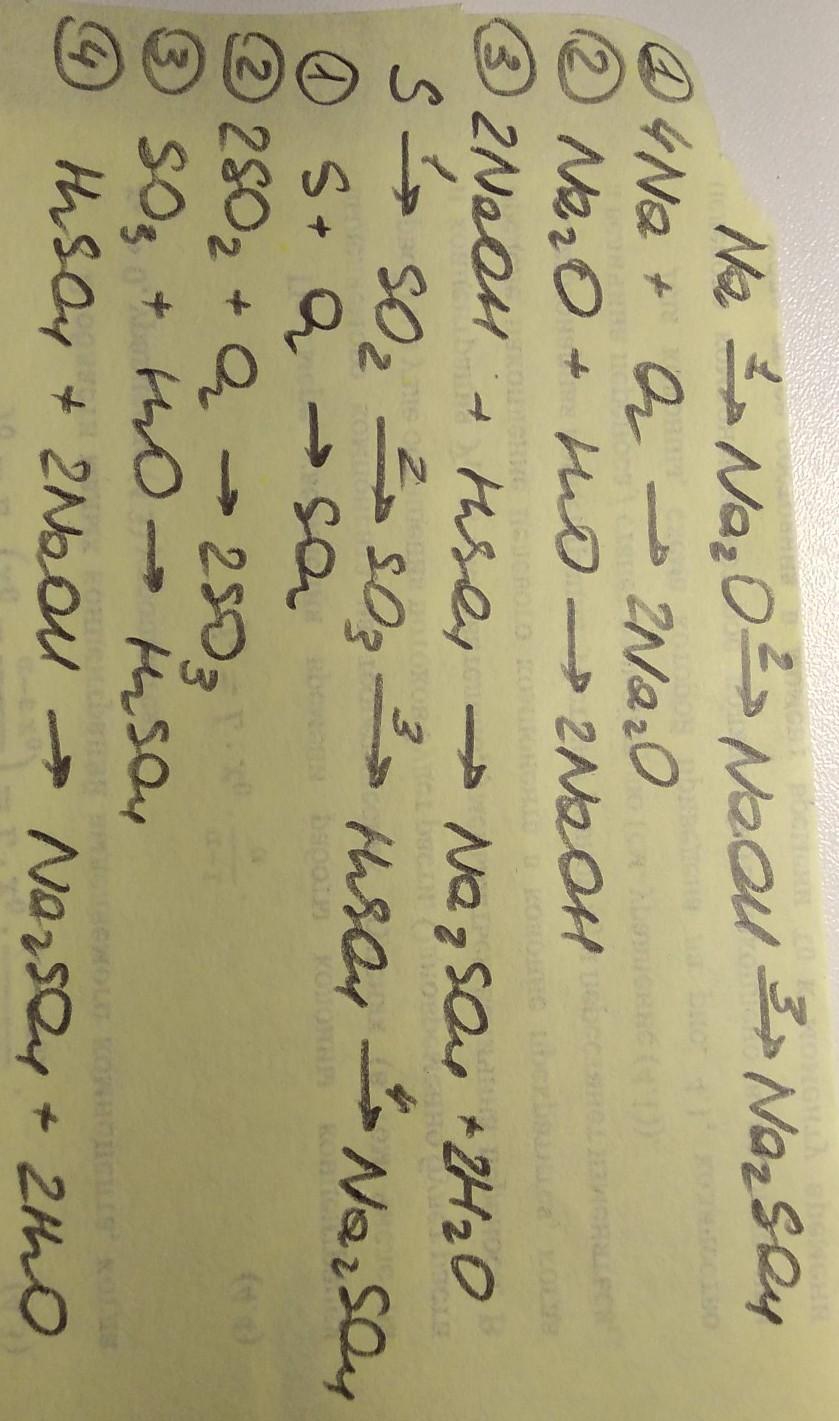 Na 1→ Na₂O 2→ NaOH 3→ Na₂SO₄
① 4Na + O₂ → 2Na₂O
② Na₂O + H₂O → 2NaOH
③ 2NaOH + H₂SO₄ → Na₂SO₄ + 2H₂O
S 1→ SO₂ 2→ SO₃ 3→ H₂SO₄ 4→ Na₂SO₄
① S + O₂ → SO₂
② 2SO₂ + O₂ → 2SO₃
③ SO₃ + H₂O → H₂SO₄
④ H₂SO₄ + 2NaOH → Na₂SO₄ + 2H₂O